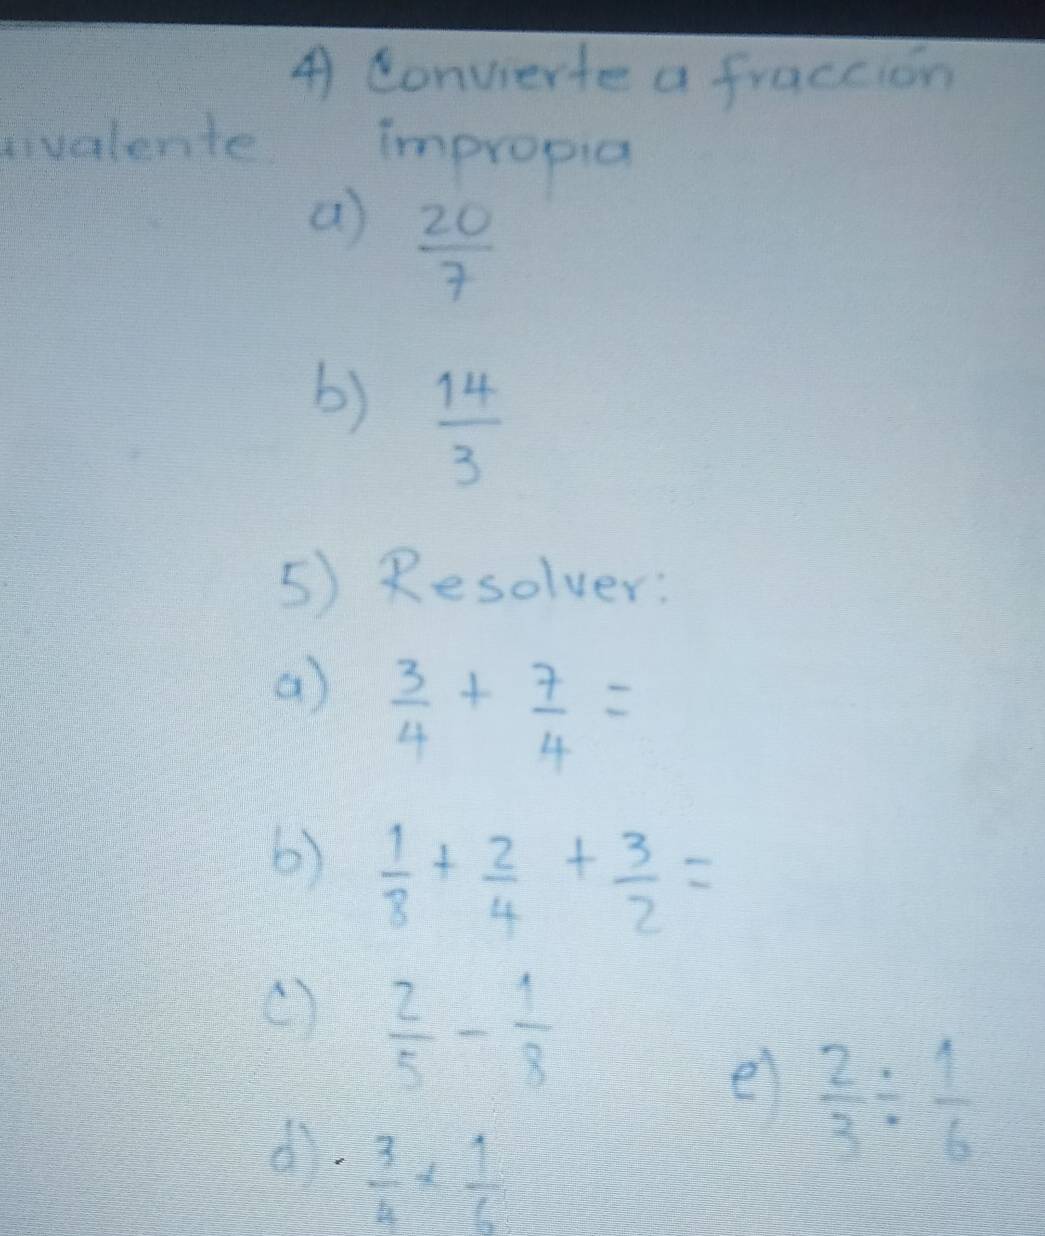 4) Convierte a fracción
impropia
a) 20/7
b) 14/3
5) Resolver:
a) 3/4 + 7/4 =
b) 1/8 + 2/4 + 3/2 =
c) 2/5 - 1/8
d) 3/4 × 1/6
e) 2/3 ÷ 1/6